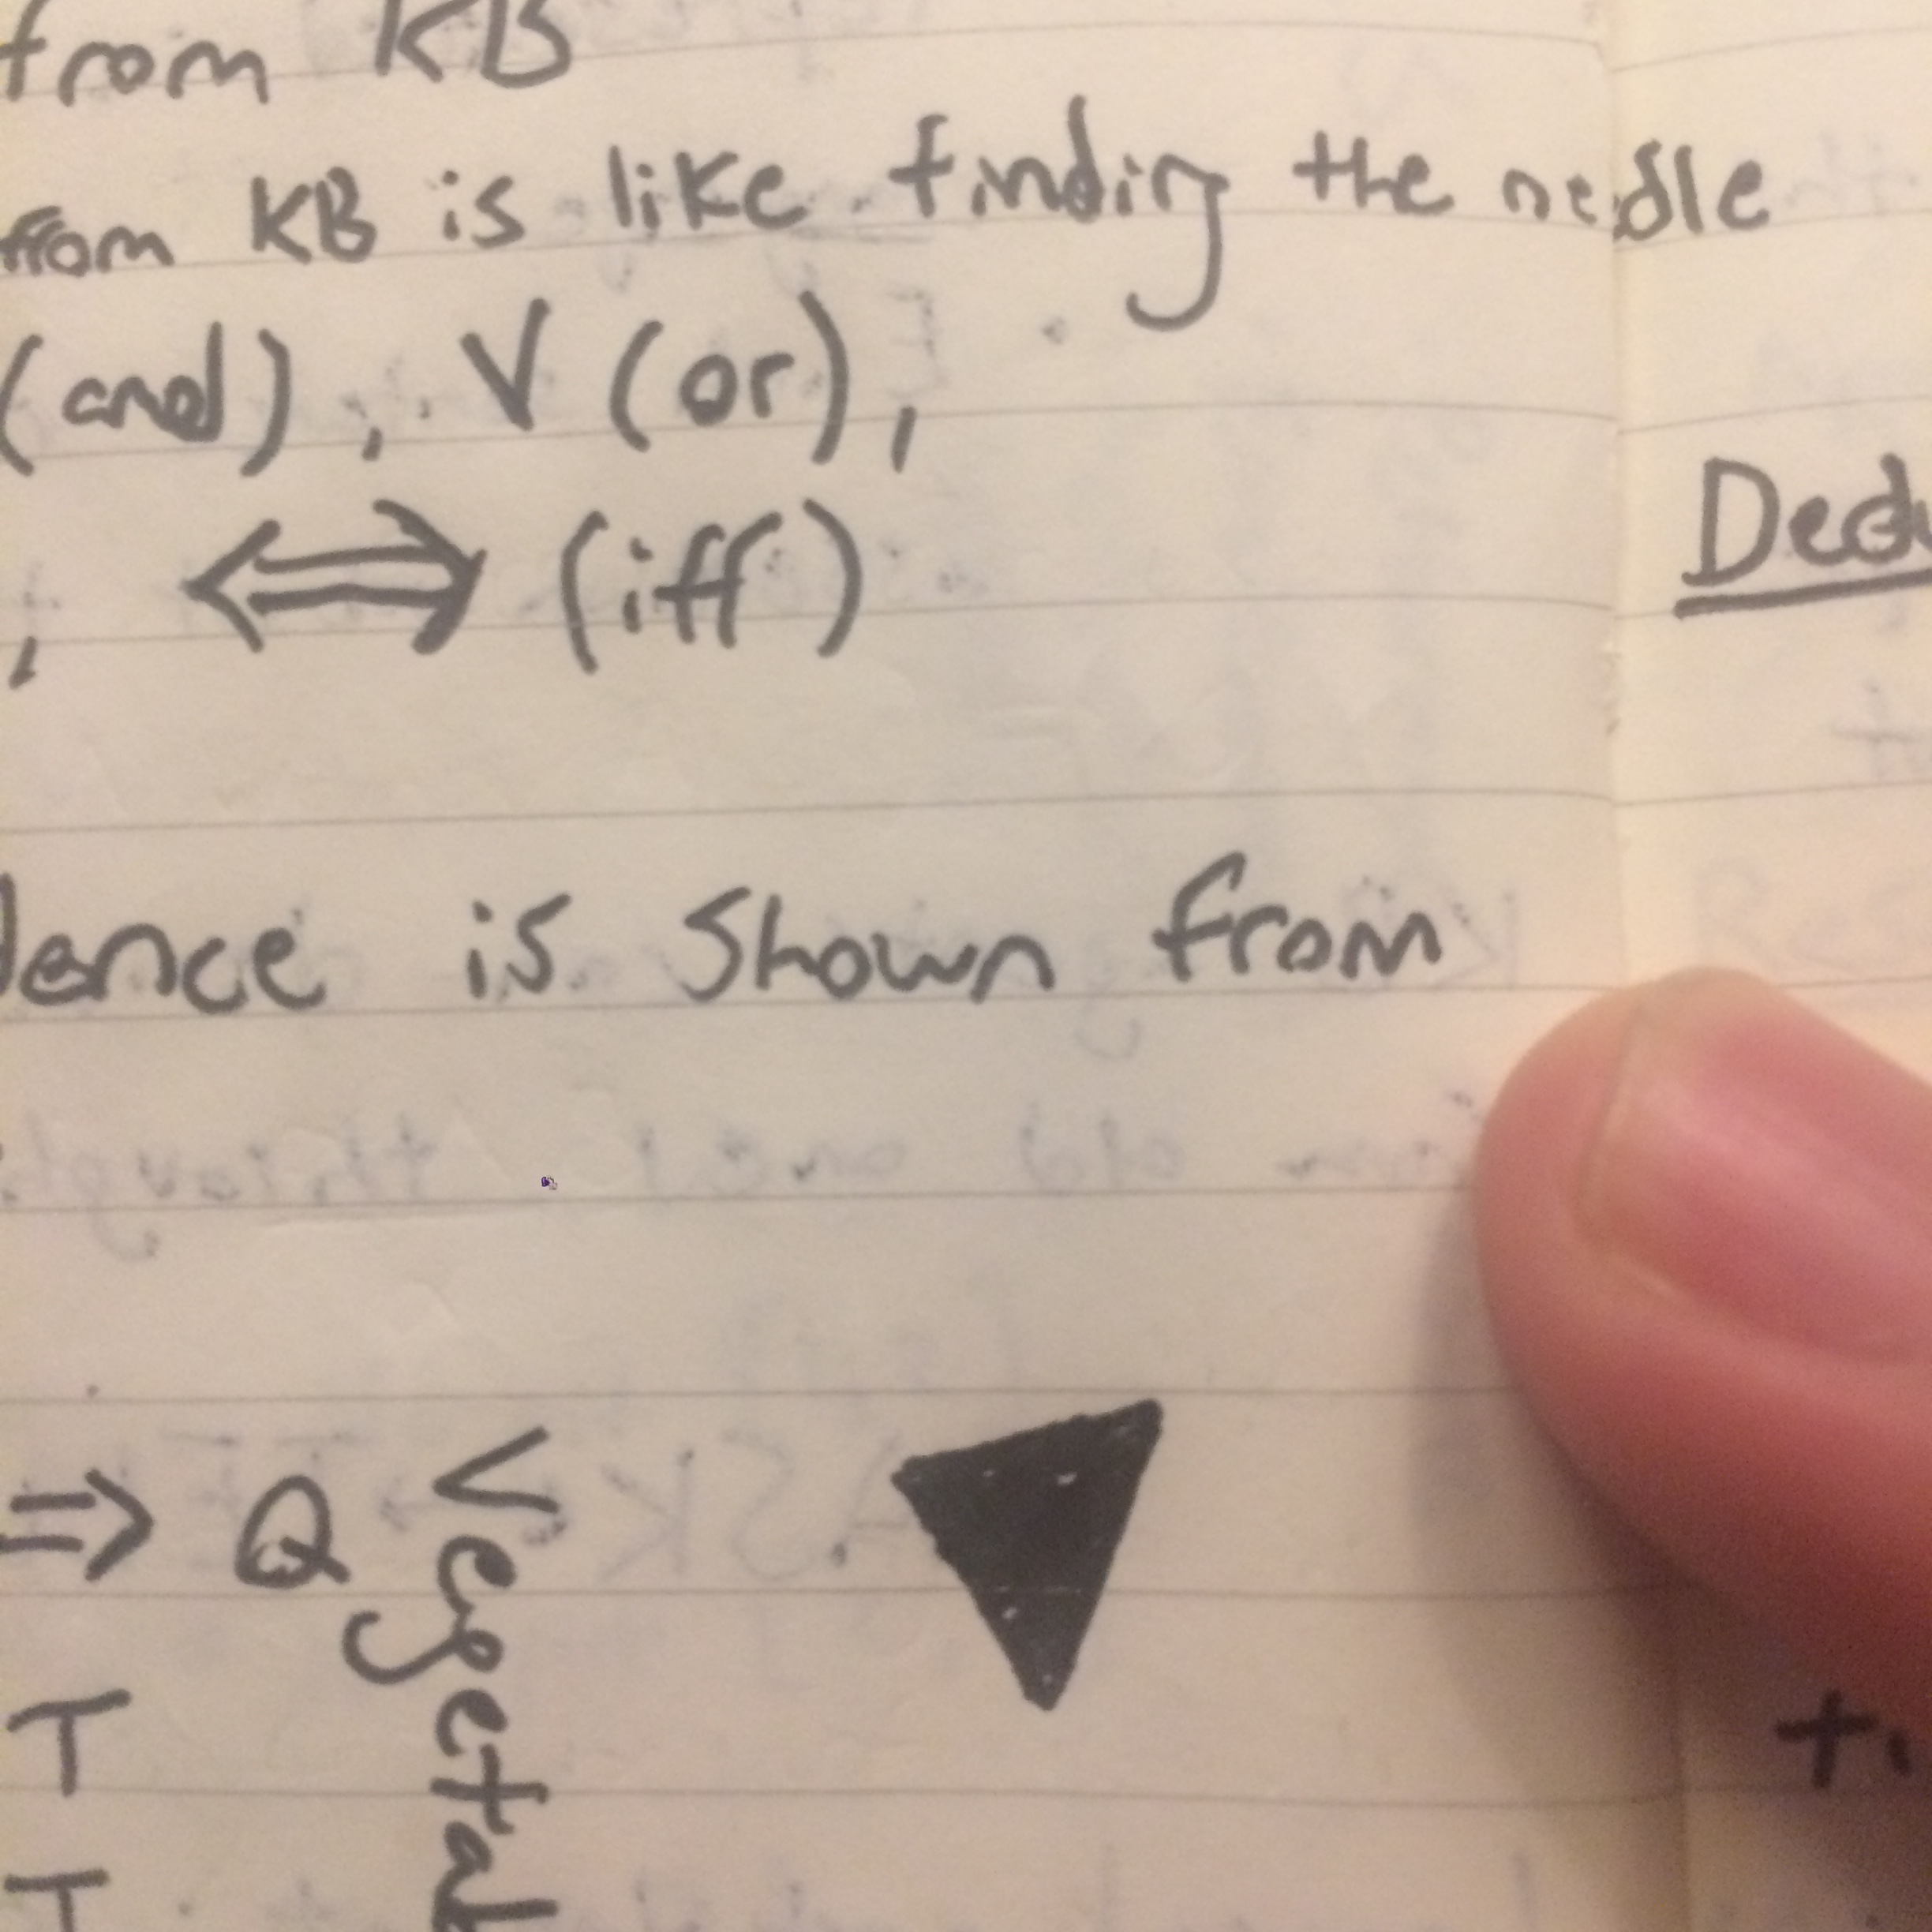 from KB
from KB is like finding the nedle
(and), V (or),
, ⇔ (iff)
Dedu
dence is shown from
⇒ Q
Vegetab
T
T